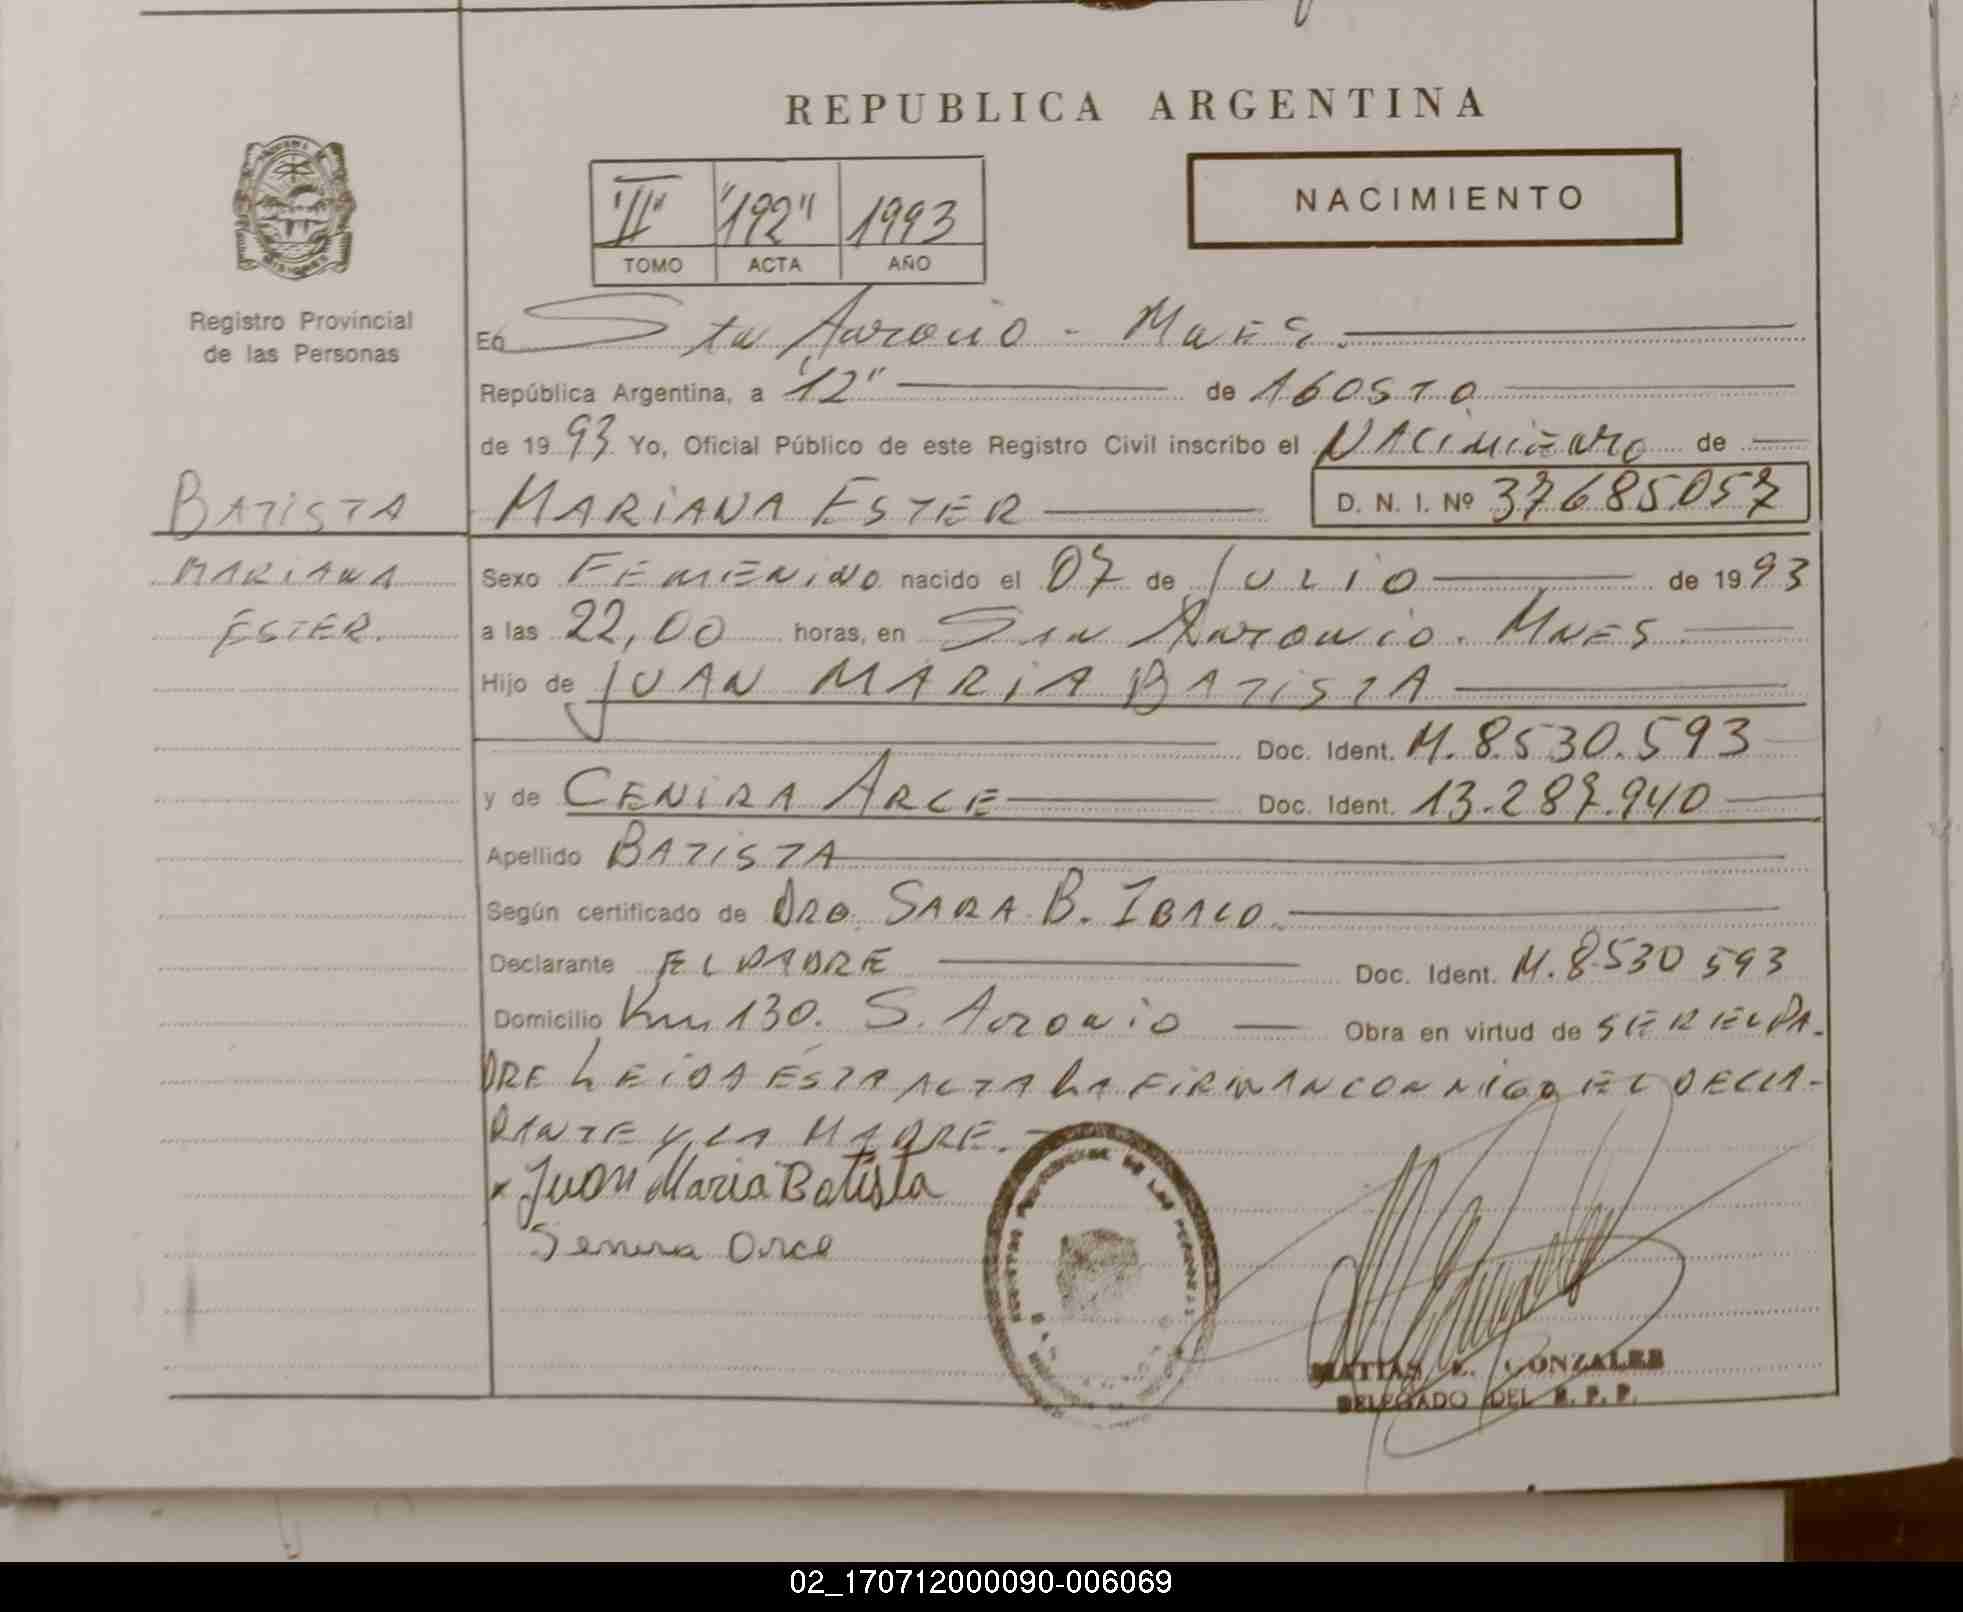 REPUBLICA ARGENTINA
NACIMIENTO
"II" "192" 1993
TOMO ACTA AÑO
Registro Provincial
de las Personas
En San Antonio - Mnes.
República Argentina, a "12" de Agosto
de 1993 Yo, Oficial Público de este Registro Civil inscribo el NACIMIENTO de
BATISTA
MARIANA ESTER D. N. I. Nº 37685057
MARIANA
ESTER.
Sexo FEMENINO nacido el 07 de JULIO de 1993
a las 22,00 horas, en San Antonio. Mnes
Hijo de JUAN MARIA BATISTA
Doc. Ident. M. 8.530.593
y de CENIRA ARCE Doc. Ident. 13.287.940
Apellido BATISTA
Según certificado de Dra. SARA B.
Declarante EL PADRE Doc. Ident. M. 8530 593
Domicilio Km 130. S. Antonio Obra en virtud de SER EL PA-
DRE LEIDA ESTA ACTA LA FIRMAN CONMIGO EL DECLA-
RANTE Y LA MADRE.
x Juan Maria Batista
Senira Arce
REGISTRO PROVINCIAL DE LAS PERSONAS
MATIAS GONZALES
DELEGADO DEL R. P. P.
02_170712000090-006069